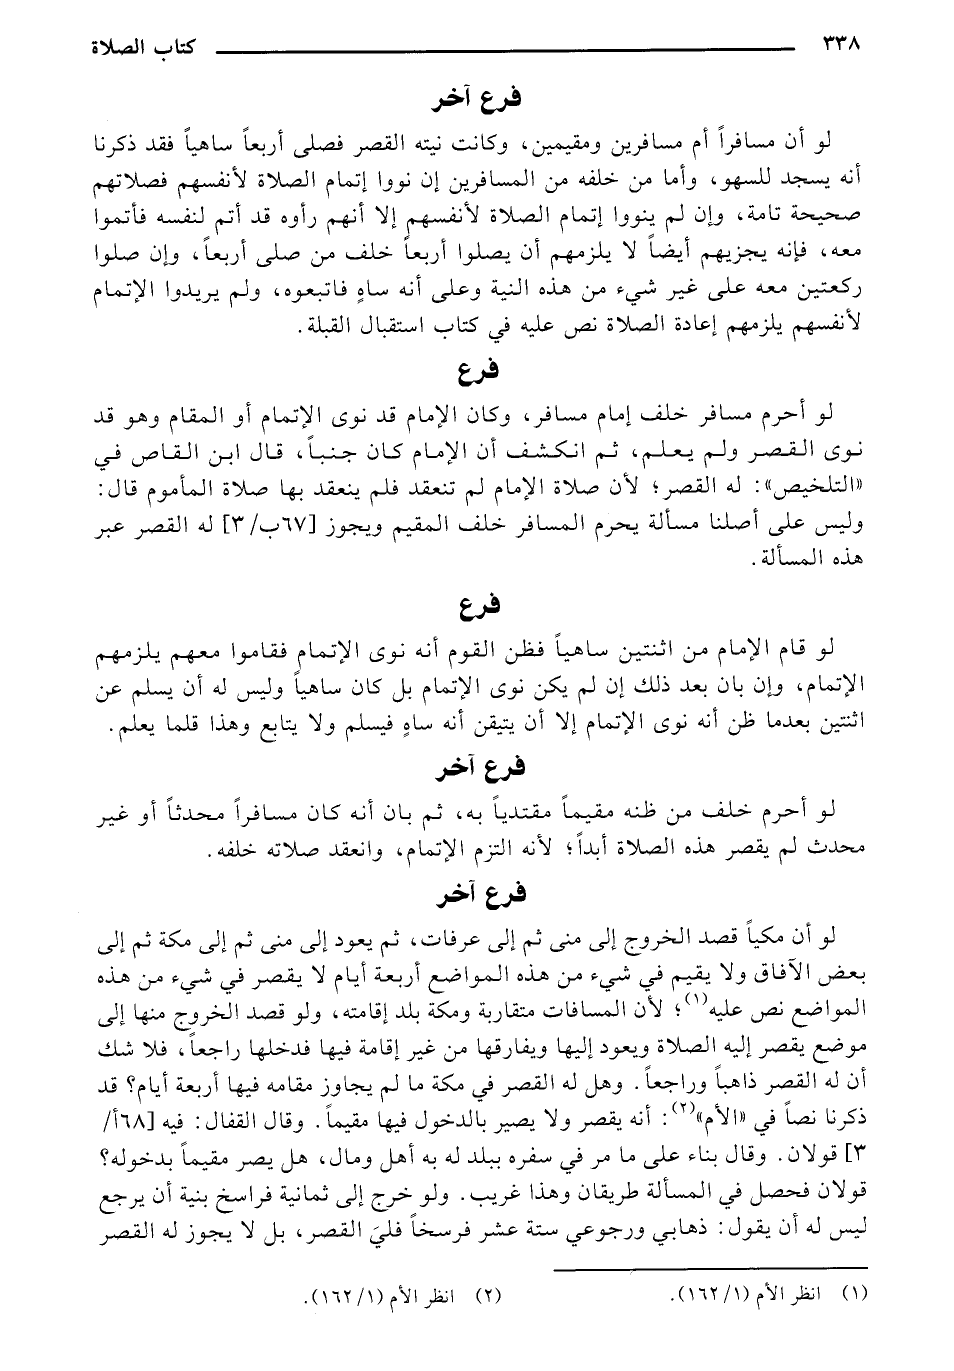 ٣٣٨ كتاب الصلاة
فرع آخر
لو أن مسافراً أم مسافرين ومقيمين، وكانت نيته القصر فصلى أربعاً ساهياً فقد ذكرنا
أنه يسجد للسهو، وأما من خلفه من المسافرين إن نووا إتمام الصلاة لأنفسهم فصلاتهم
صحيحة تامة، وإن لم ينووا إتمام الصلاة لأنفسهم إلا أنهم رأوه قد أتم لنفسه فأتموا
معه، فإنه يجزيهم أيضاً لا يلزمهم أن يصلوا أربعاً خلف من صلى أربعاً، وإن صلوا
ركعتين معه على غير شيء من هذه النية وعلى أنه ساهٍ فاتبعوه، ولم يريدوا الإتمام
لأنفسهم يلزمهم إعادة الصلاة نص عليه في كتاب استقبال القبلة.
فرع
لو أحرم مسافر خلف إمام مسافر، وكان الإمام قد نوى الإتمام أو المقام وهو قد
نوى القصر ولم يعلم، ثم انكشف أن الإمام كان جنباً، قال ابن القاص في
«التلخيص»: له القصر؛ لأن صلاة الإمام لم تنعقد فلم ينعقد بها صلاة المأموم قال:
وليس على أصلنا مسألة يحرم المسافر خلف المقيم ويجوز [٦٧ب/ ٣] له القصر عبر
هذه المسألة.
فرع
لو قام الإمام من اثنتين ساهياً فظن القوم أنه نوى الإتمام فقاموا معهم يلزمهم
الإتمام، وإن بان بعد ذلك إن لم يكن نوى الإتمام بل كان ساهياً وليس له أن يسلم عن
اثنتين بعدما ظن أنه نوى الإتمام إلا أن يتيقن أنه ساهٍ فيسلم ولا يتابع وهذا قلما يعلم.
فرع آخر
لو أحرم خلف من ظنه مقيماً مقتدياً به، ثم بان أنه كان مسافراً محدثاً أو غير
محدث لم يقصر هذه الصلاة أبداً؛ لأنه التزم الإتمام، وانعقد صلاته خلفه.
فرع آخر
لو أن مكياً قصد الخروج إلى منى ثم إلى عرفات، ثم يعود إلى منى ثم إلى مكة ثم إلى
بعض الآفاق ولا يقيم في شيء من هذه المواضع أربعة أيام لا يقصر في شيء من هذه
المواضع نص عليه(١)؛ لأن المسافات متقاربة ومكة بلد إقامته، ولو قصد الخروج منها إلى
موضع يقصر إليه الصلاة ويعود إليها ويفارقها من غير إقامة فيها فدخلها راجعاً، فلا شك
أن له القصر ذاهباً وراجعاً. وهل له القصر في مكة ما لم يجاوز مقامه فيها أربعة أيام؟ قد
ذكرنا نصاً في «الأم»(٢): أنه يقصر ولا يصير بالدخول فيها مقيماً. وقال القفال: فيه [٦٨أ/
٣] قولان. وقال بناء على ما مر في سفره ببلد له به أهل ومال، هل يصر مقيماً بدخوله؟
قولان فحصل في المسألة طريقان وهذا غريب. ولو خرج إلى ثمانية فراسخ بنية أن يرجع
ليس له أن يقول: ذهابي ورجوعي ستة عشر فرسخاً فليَ القصر، بل لا يجوز له القصر
(١) انظر الأم (١/ ١٦٢). (٢) انظر الأم (١/ ١٦٢).